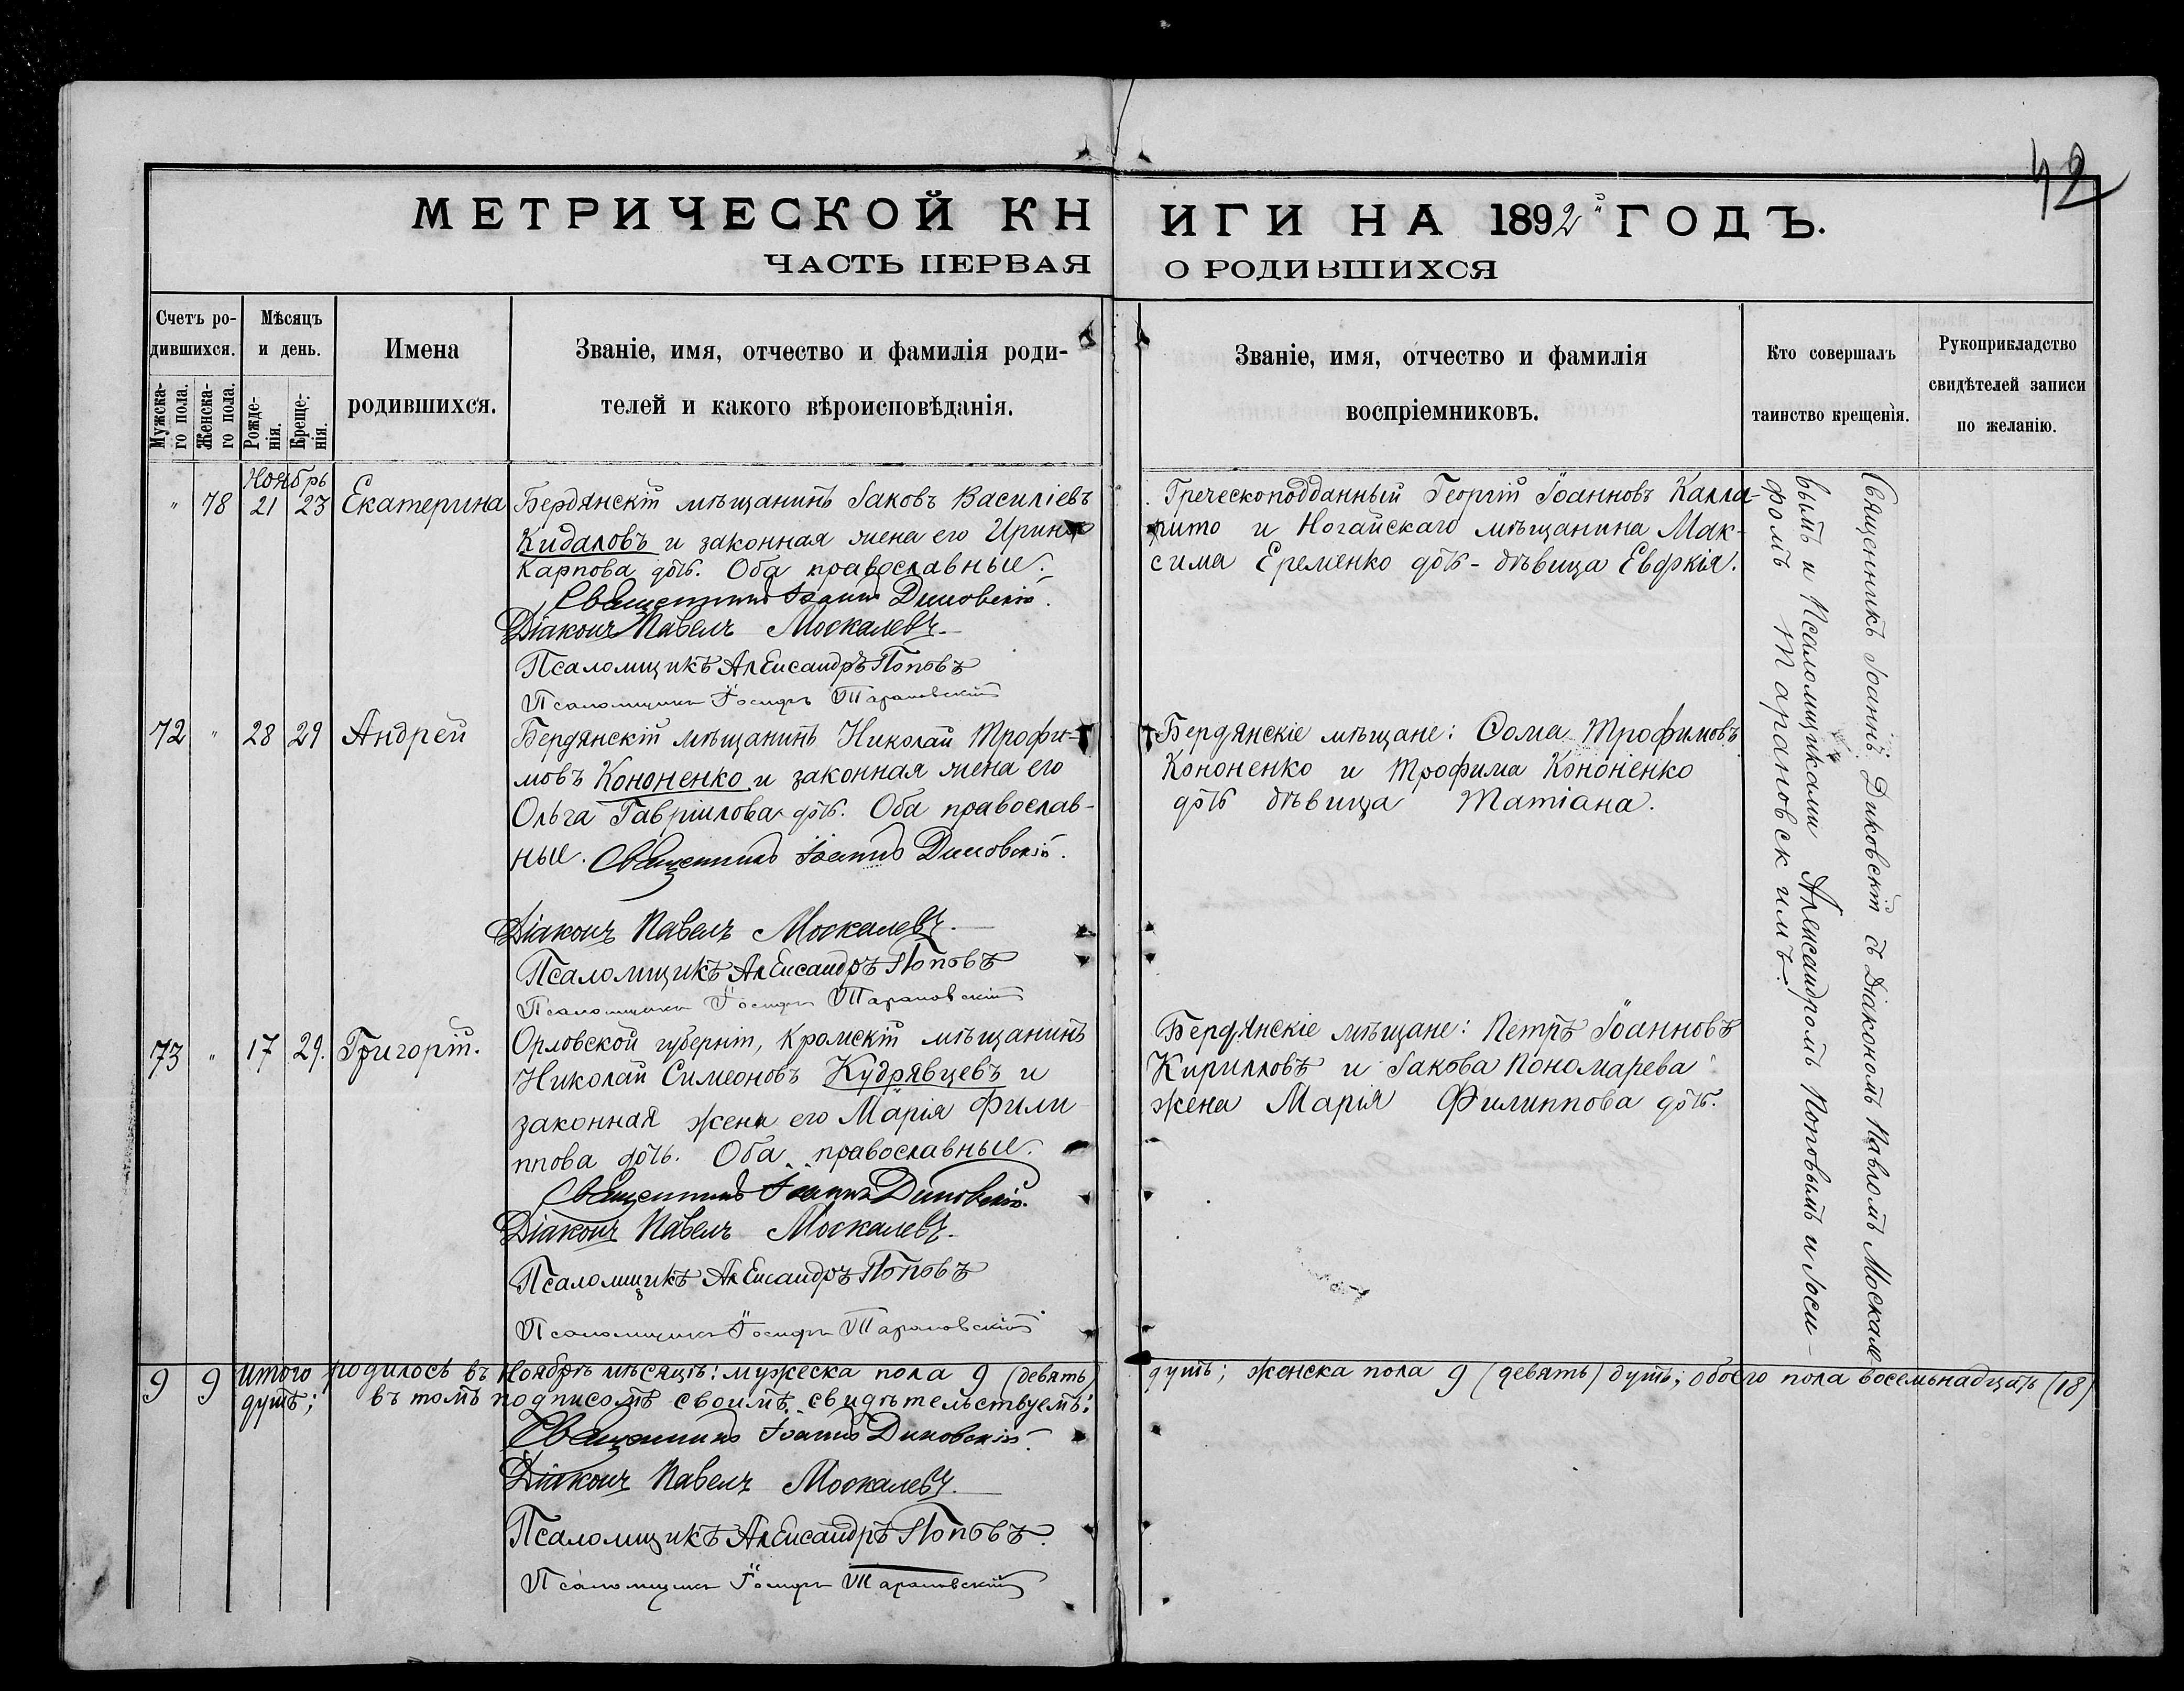 42
МЕТРИЧЕСКОЙ КНИГИ НА 1892й ГОДЪ.
ЧАСТЬ ПЕРВАЯ О РОДИВШИХСЯ
Счетъ ро-
дившихся.
Мужска-
го пола.
Женска-
го пола.
Мѣсяцъ
и день.
Рожде-
нія.
Креще-
нія.
Имена
родившихся.
Званіе, имя, отчество и фамилія роди-
телей и какого вѣроисповѣданія.
Званіе, имя, отчество и фамилія
воспріемниковъ.
Кто совершалъ
таинство крещенія.
Рукоприкладство
свидѣтелей записи
по желанію.
Ноябрь
" 78 21 23 Екатерина
Бердянскій мѣщанинъ Іаковъ Василіевъ
Кидаловъ и законная жена его Ирина
Карпова дочь. Оба православные.
Священникъ Іоаннъ Диковскій.
Діаконъ Павелъ Москалевъ.
Псаломщикъ Александръ Поповъ
Псаломщикъ Іосифъ Тарановскій
Греческоподданный Георгій Іоанновъ Калла-
рито и Ногайскаго мѣщанина Мак-
сима Еременко дочь - дѣвица Евфкія.
72 " 28 29 Андрей
Бердянскій мѣщанинъ Николай Трофи-
мовъ Кононенко и законная жена его
Ольга Гавріилова дочь. Оба православ-
ные. Священникъ Іоаннъ Диковскій.
Діаконъ Павелъ Москалевъ.
Псаломщикъ Александръ Поповъ
Псаломщикъ Іосифъ Тарановскій
Бердянскіе мѣщане: Ѳома Трофимовъ
Кононенко и Трофима Кононенко
дочь дѣвица Татіана.
73 " 17 29. Григорій.
Орловской губерніи, Кромскій мѣщанинъ
Николай Симеоновъ Кудрявцевъ и
законная жена его Марія Фили
ппова дочь. Оба православные.
Священникъ Іоаннъ Диковскій.
Діаконъ Павелъ Москалевъ.
Псаломщикъ Александръ Поповъ
Псаломщикъ Іосифъ Тарановскій
Бердянскіе мѣщане: Петръ Іоанновъ
Кирилловъ и Іакова Пономарева
жена Марія Филиппова дочь.
Священникъ Іоаннъ Диковскій съ Діакономъ Павломъ Москале-
вымъ и Псаломщиками Александромъ Поповымъ и Іоси-
фомъ Тарановскимъ.
9 9 Итого родилось въ Ноябрѣ мѣсяцѣ: мужеска пола 9 (девять)
душъ; женска пола 9 (девять) душъ; обоего пола восемьнадцать (18)
душъ; въ томъ подписомъ своимъ свидѣтельствуемъ:
Священникъ Іоаннъ Диковскій.
Діаконъ Павелъ Москалевъ.
Псаломщикъ Александръ Поповъ.
Псаломщикъ Іосифъ Тарановскій